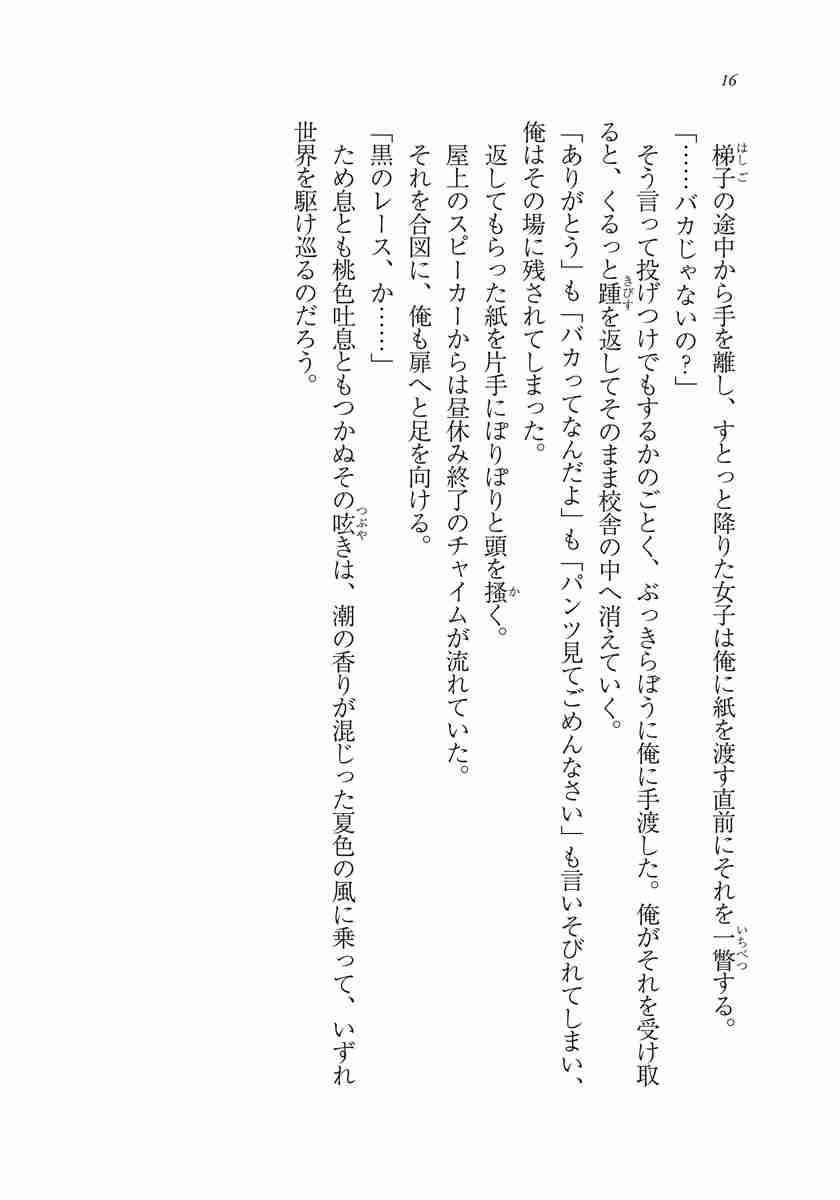 16
梯子の途中から手を離し、すとっと降りた女子は俺に紙を渡す直前にそれを一瞥する。
「……バカじゃないの？」
そう言って投げつけでもするかのごとく、ぶっきらぼうに俺に手渡した。俺がそれを受け取
ると、くるっと踵を返してそのまま校舎の中へ消えていく。
「ありがとう」も「バカってなんだよ」も「パンツ見てごめんなさい」も言いそびれてしまい、
俺はその場に残されてしまった。
返してもらった紙を片手にぽりぽりと頭を掻く。
屋上のスピーカーからは昼休み終了のチャイムが流れていた。
それを合図に、俺も扉へと足を向ける。
「黒のレース、か……」
ため息とも桃色吐息ともつかぬその呟きは、潮の香りが混じった夏色の風に乗って、いずれ
世界を駆け巡るのだろう。